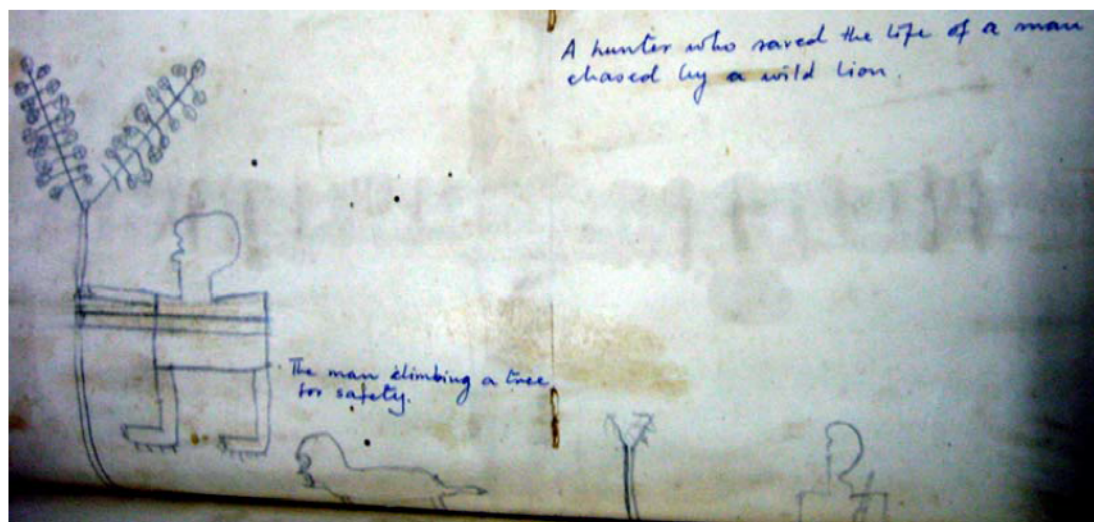 A hunter who saved the life of a man
chased by a wild lion.
The man climbing a tree
for safety.